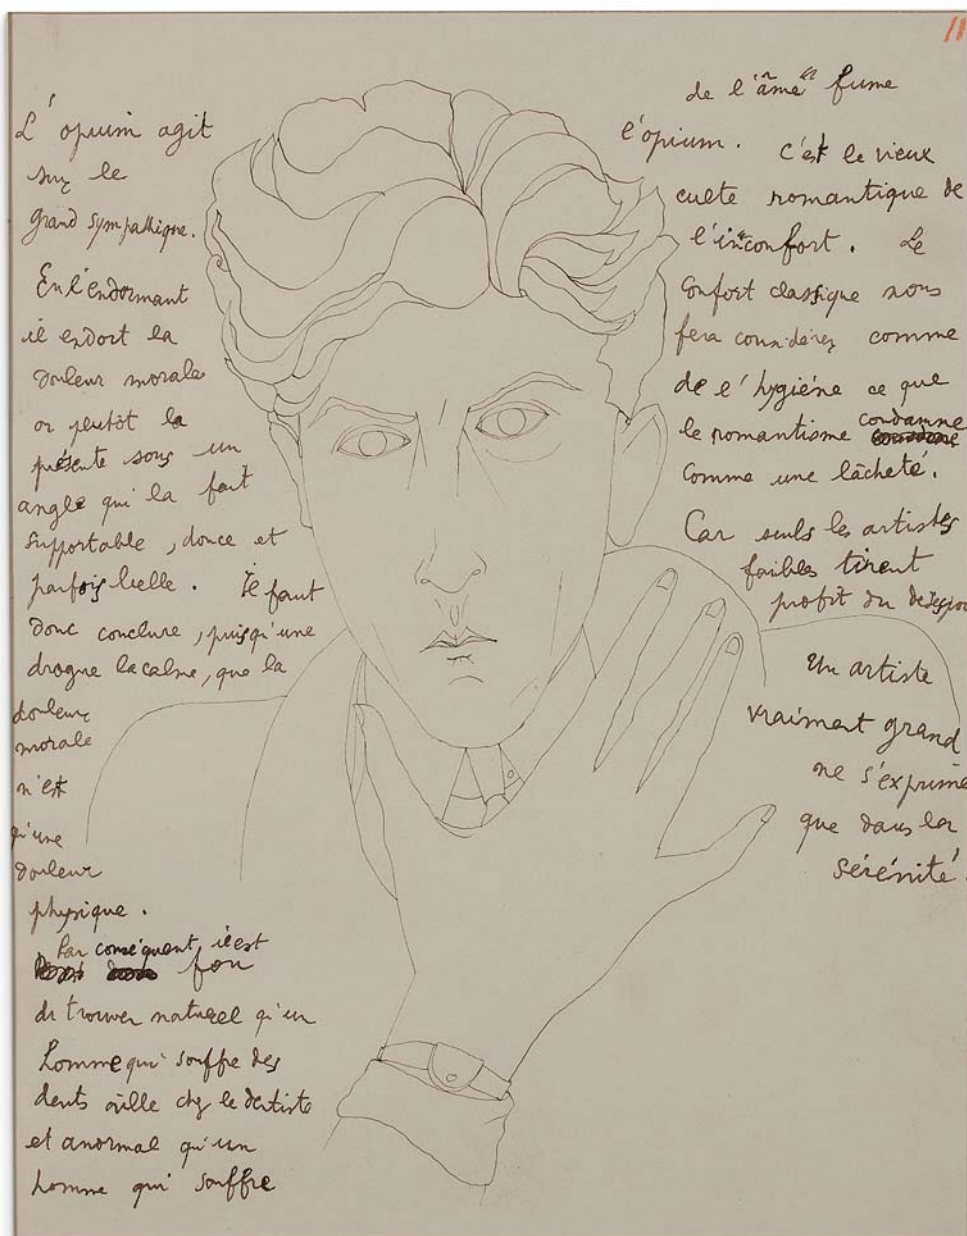 L'opium agit
sur le
grand sympathique.
En l'endormant
il endort la
douleur morale
ou plutôt la
présente sous un
angle qui la fait
supportable, douce et
parfois belle. Il faut
donc conclure, puisqu'une
drogue la calme, que la
douleur
morale
n'est
qu'une
douleur
physique.
Par conséquent, il est
fou
de trouver naturel qu'un
homme qui souffre des
dents aille chez le dentiste
et anormal qu'un
homme qui souffre
de l'"âme" fume
l'opium. C'est le vieux
culte romantique de
l'inconfort. Le
Confort classique nous
fera considérer comme
de l'hygiène ce que
le romantisme condamne
comme une lâcheté.
Car seuls les artistes
faibles tirent
profit du desespoi
Un artiste
vraiment grand
ne s'exprime
que dans la
sérénité.